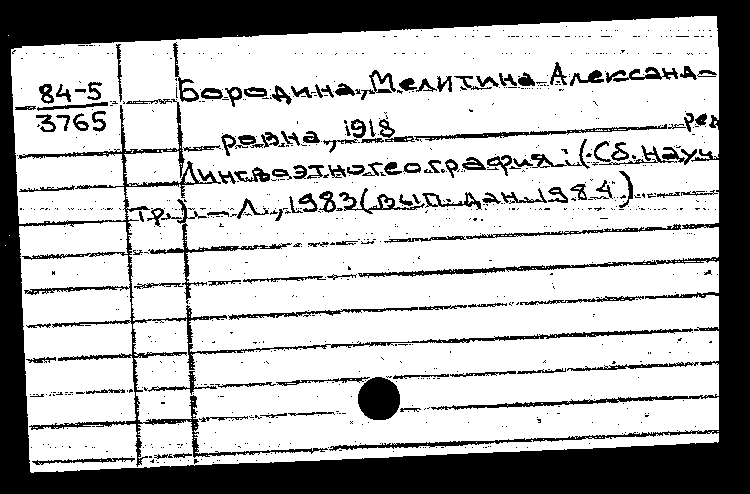 84-5
3765
Бородина, Мелитина Александ-
ровна, 1918 ред
Лингвоэтногеография: (Сб. науч.
тр.) – Л., 1983 (вып. дан. 1984)